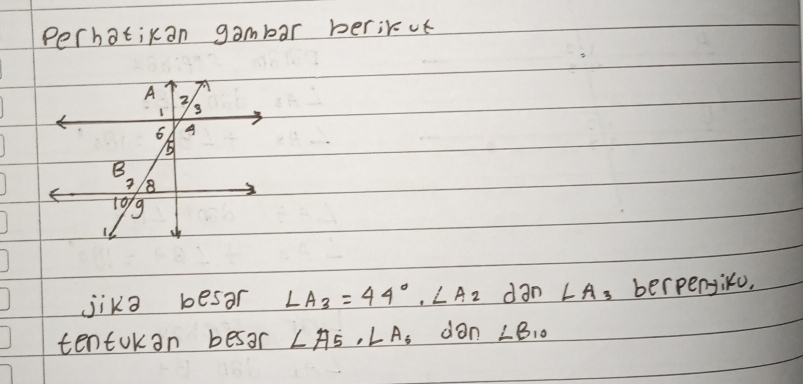 Perhatikan gambar berikut
A 2
1 3
6 4
5
B
7 8
10 9
jika besar ∠A₃ = 44°. ∠A₂ dan ∠A₃ berpenyiku.
tentukan besar ∠A₅, ∠A₆ dan ∠B₁₀